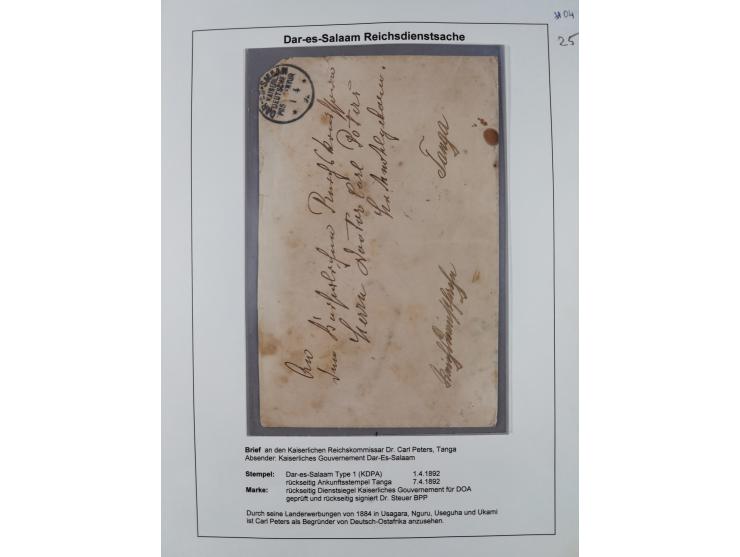 Dar-es-Salaam Reichsdienstsache
25
KAISERL.
DEUTSCHE
An
den Kaiserlichen Reichskommissar
Herrn Doctor Carl Peters
Hochwohlgeboren.
Tanga
Reichsdienstsache
Brief an den Kaiserlichen Reichskommissar Dr. Carl Peters, Tanga
Absender: Kaiserliches Gouvernement Dar-Es-Salaam
Stempel: Dar-es-Salaam Type 1 (KDPA) 1.4.1892
rückseitig Ankunftsstempel Tanga 7.4.1892
Marke: rückseitig Dienstsiegel Kaiserliches Gouvernement für DOA
geprüft und rückseitig signiert Dr. Steuer BPP
Durch seine Landerwerbungen von 1884 in Usagara, Nguru, Useguha und Ukami
ist Carl Peters als Begründer von Deutsch-Ostafrika anzusehen.